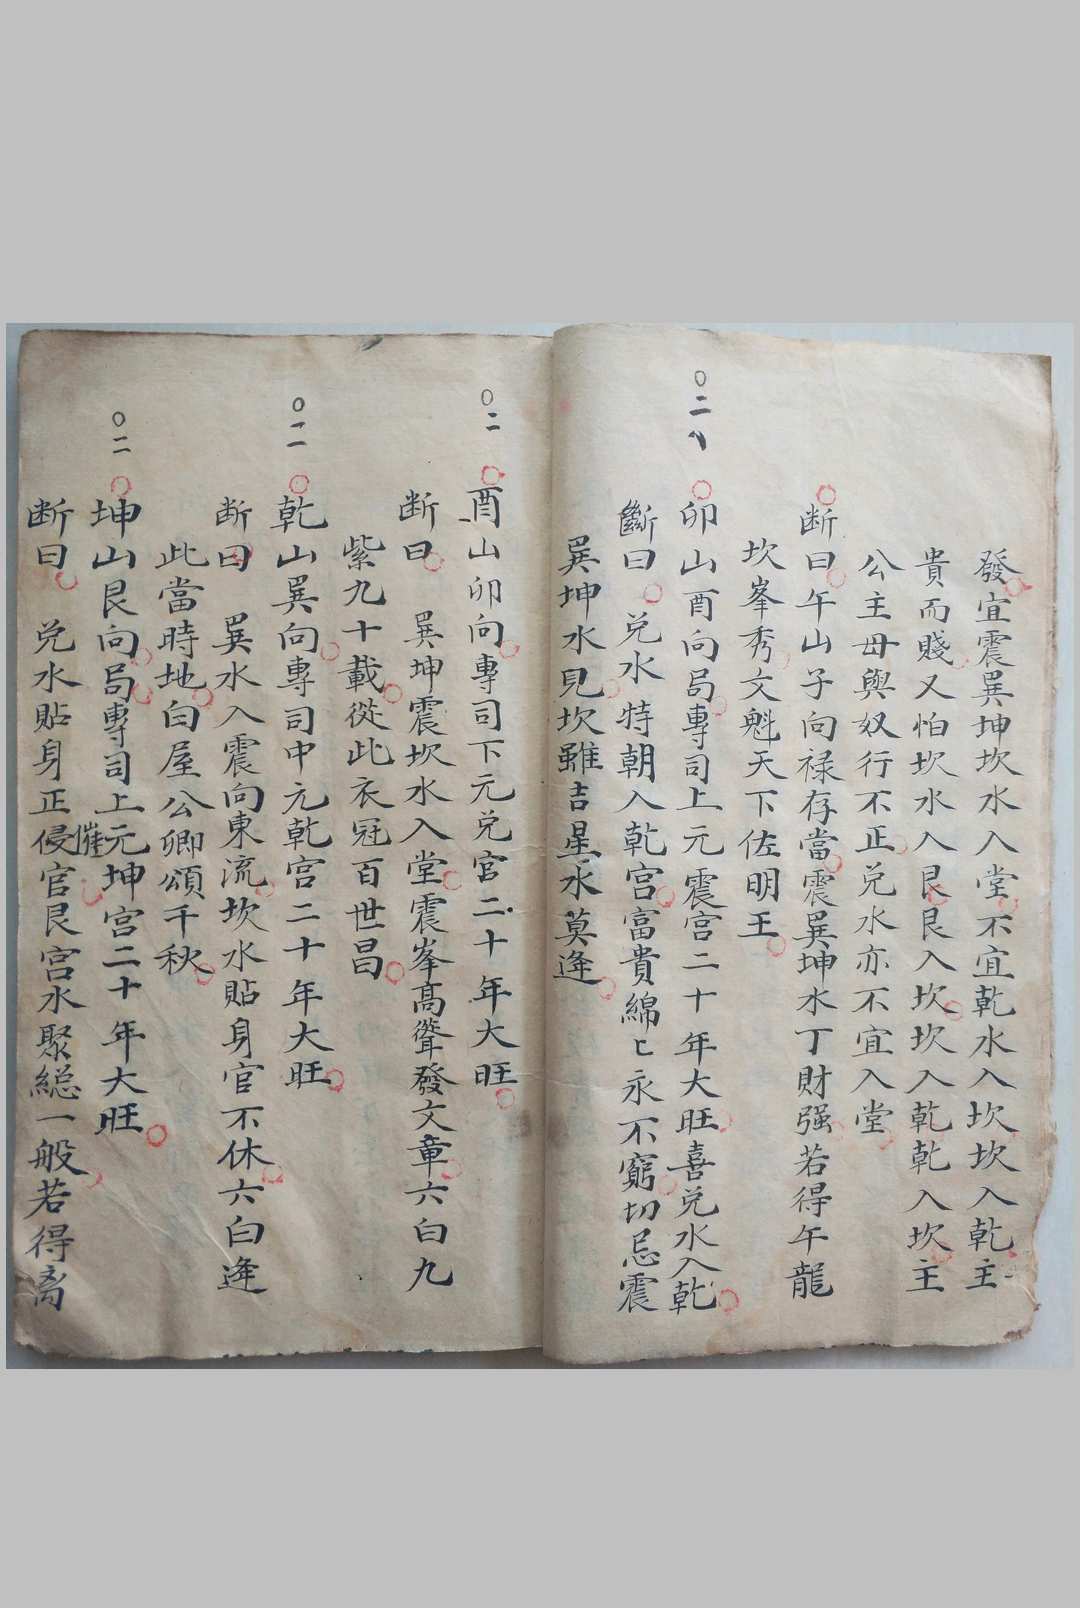 發宜震巽坤坎水入堂不宜乾水入坎坎入乾主
貴而賤又怕坎水入艮艮入坎坎入乾乾入坎主
公主毋與奴行不正兑水亦不宜入堂
断曰午山子向禄存當震巽坤水丁財强若得午龍
坎峯秀文魁天下佐明王
〇二
卯山酉向局專司上元震宫二十年大旺喜兑水入乾
斷曰兑水特朝入乾宫富貴綿〻永不窮切忌震
巽坤水見坎雖吉星水莫逢
〇二
酉山卯向專司下元兑宫二十年大旺
断曰巽坤震坎水入堂震峯高聳發文章六白九
紫九十載從此衣冠百世昌
〇二
乾山巽向專司中元乾宫二十年大旺
断曰巽水入震向東流坎水貼身官不休六白逢
此當時地白屋公卿頌千秋
〇二
坤山艮向局專司上元坤宫二十年大旺
断曰兑水貼身正侵催官艮宫水聚総一般若得离